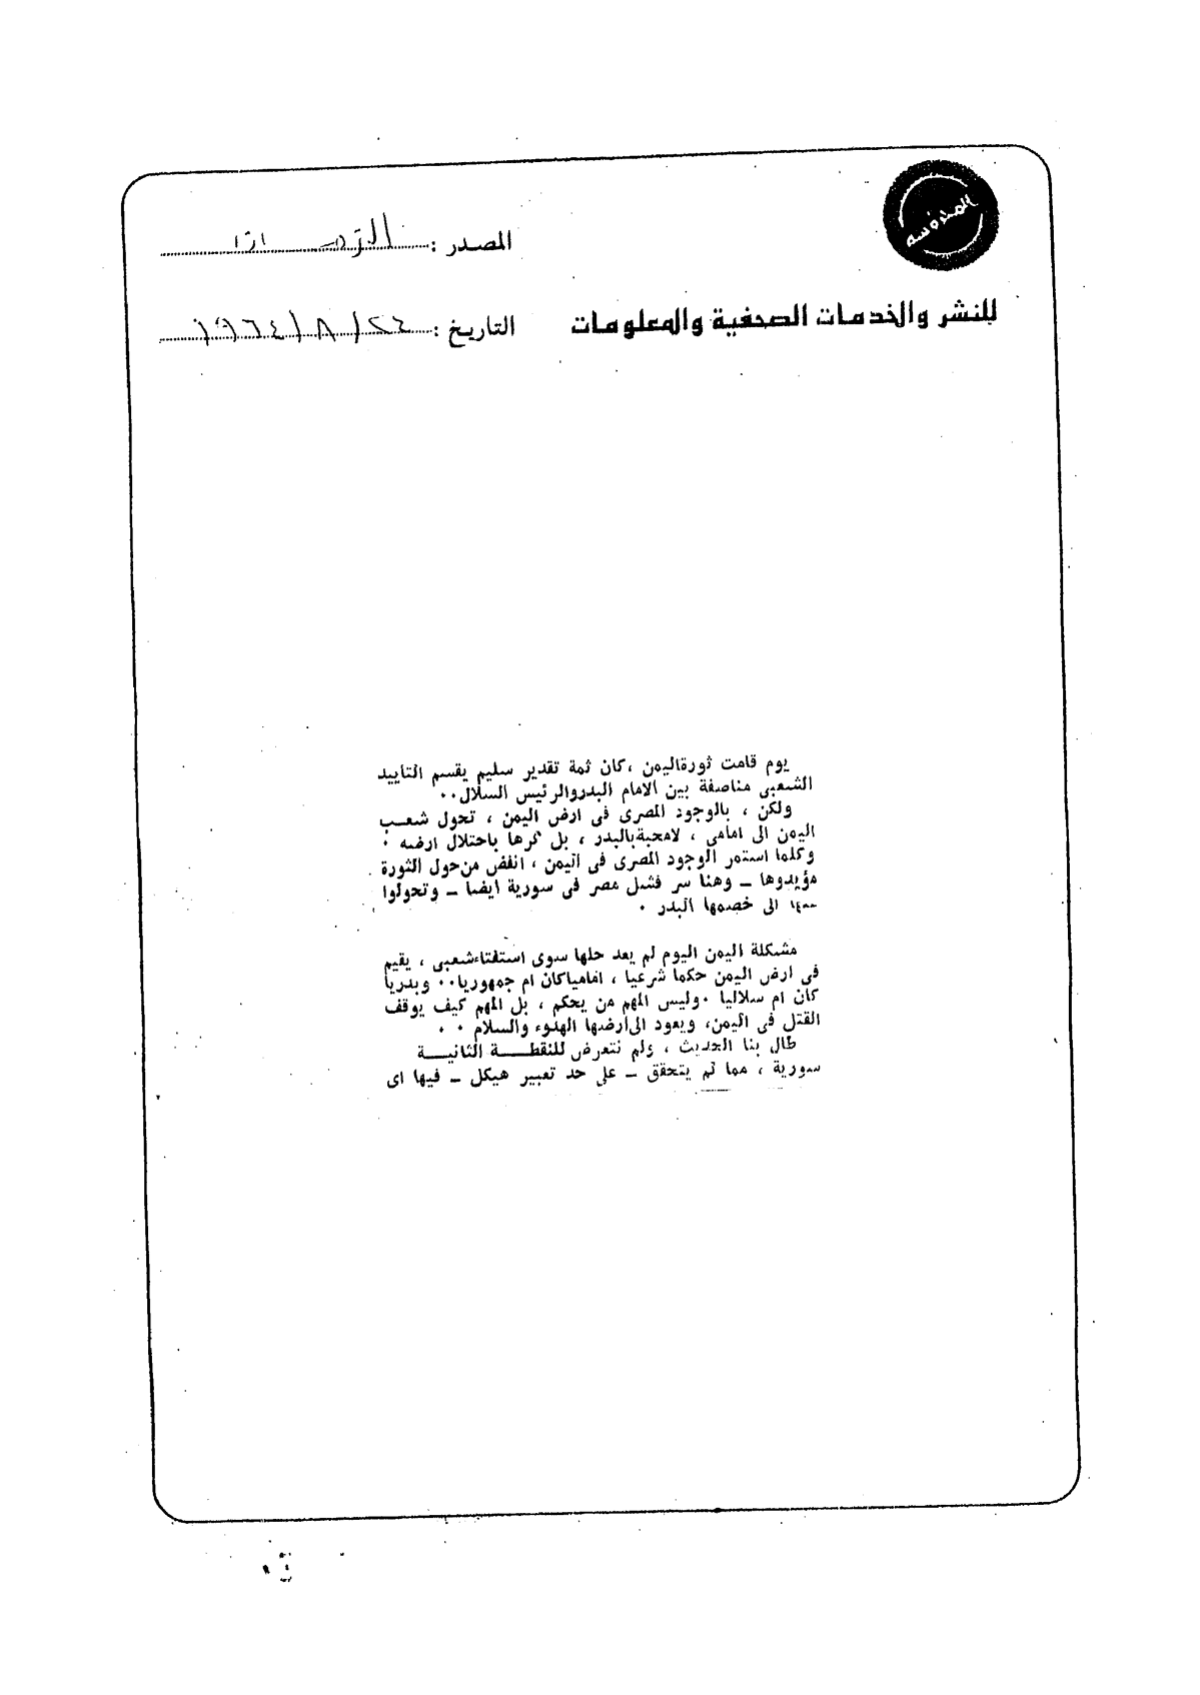 المصدر :
للنشر والخدمات الصحفية والمعلومات
التاريخ : ٢٤ / ٨ / ١٩٦٤
يوم قامت ثورةاليمن ،كان ثمة تقدير سليم يقسم التاييد
الشعبى مناصفة بين الامام البدروالرئيس السلال ..
ولكن ، بالوجود المصرى فى ارض اليمن ، تحول شعب
اليمن الى امامى ، لامحبةبالبدر ، بل كرها باحتلال ارضه .
وكلما استمر الوجود المصرى فى اليمن ، انفض من حول الثورة
مؤيدوها ـ وهنا سر فشل مصر فى سورية ايضا ـ وتحولوا
الى خصمها البدر .
مشكلة اليمن اليوم لم يعد حلها سوى استفتاءشعبى ، يقيم
فى ارض اليمن حكما شرعيا ، اماميا كان ام جمهوريا .. وبدريا
كان ام سلاليا . وليس المهم من يحكم ، بل المهم كيف يوقف
القتل فى اليمن، ويعود الى أرضها الهدوء والسلام . .
طال بنا الحديث ، ولم نتعرض للنقطــة الثانيــة
سورية ، مما لم يتحقق ـ على حد تعبير هيكل ـ فيها اى